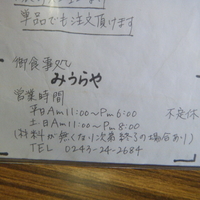 単品でも注文頂けます
御食事処
みうらや
営業時間
平日Am11:00〜Pm6:00 不定休
土日Am11:00〜Pm8:00
(材料が無くなり次第終了の場合あり)
TEL 0243-24-2684